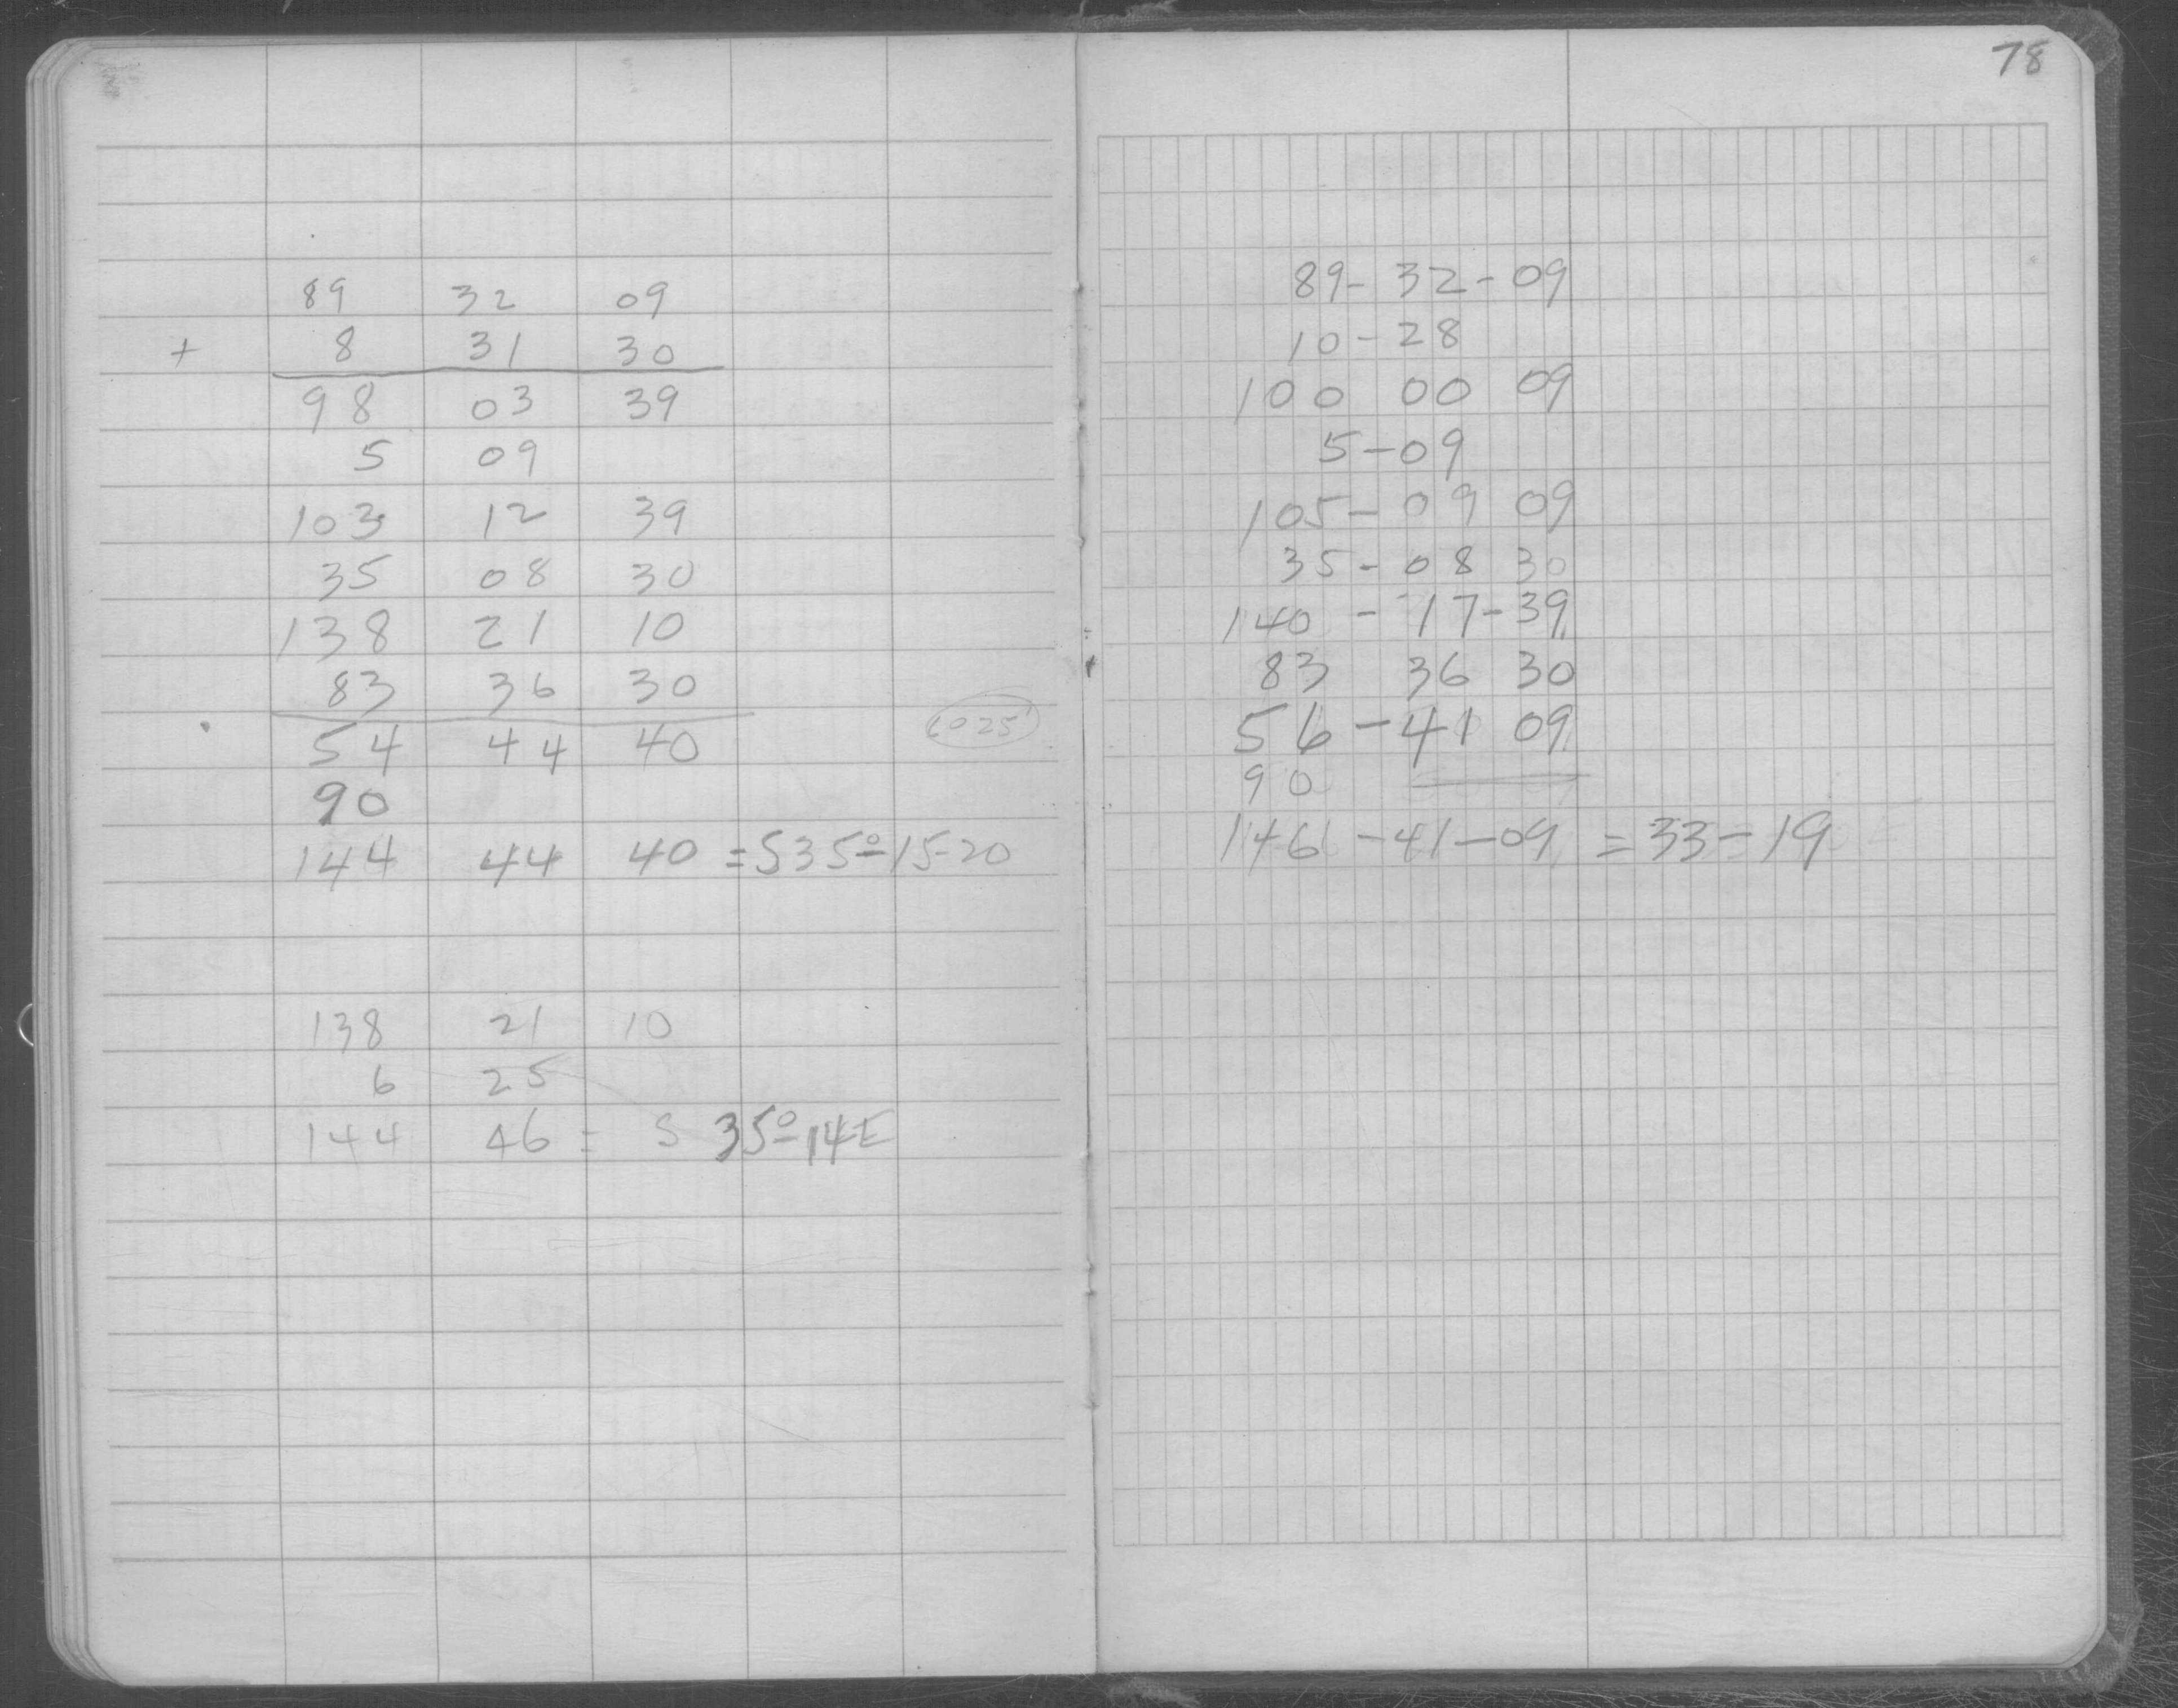 89 32 09
+ 8 31 30
98 03 39
5 09
103 12 39
35 08 30
138 21 10
83 36 30
54 44 40
90
144 44 40 = S35°-15-20
138 21 10
6 25
144 46 = S 35°-14E
78
89-32-09
10-28
100 00 09
5-09
105-09 09
35-08 30
140-17-39
83 36 30
56-41 09
90
146-41-09 = 33-19